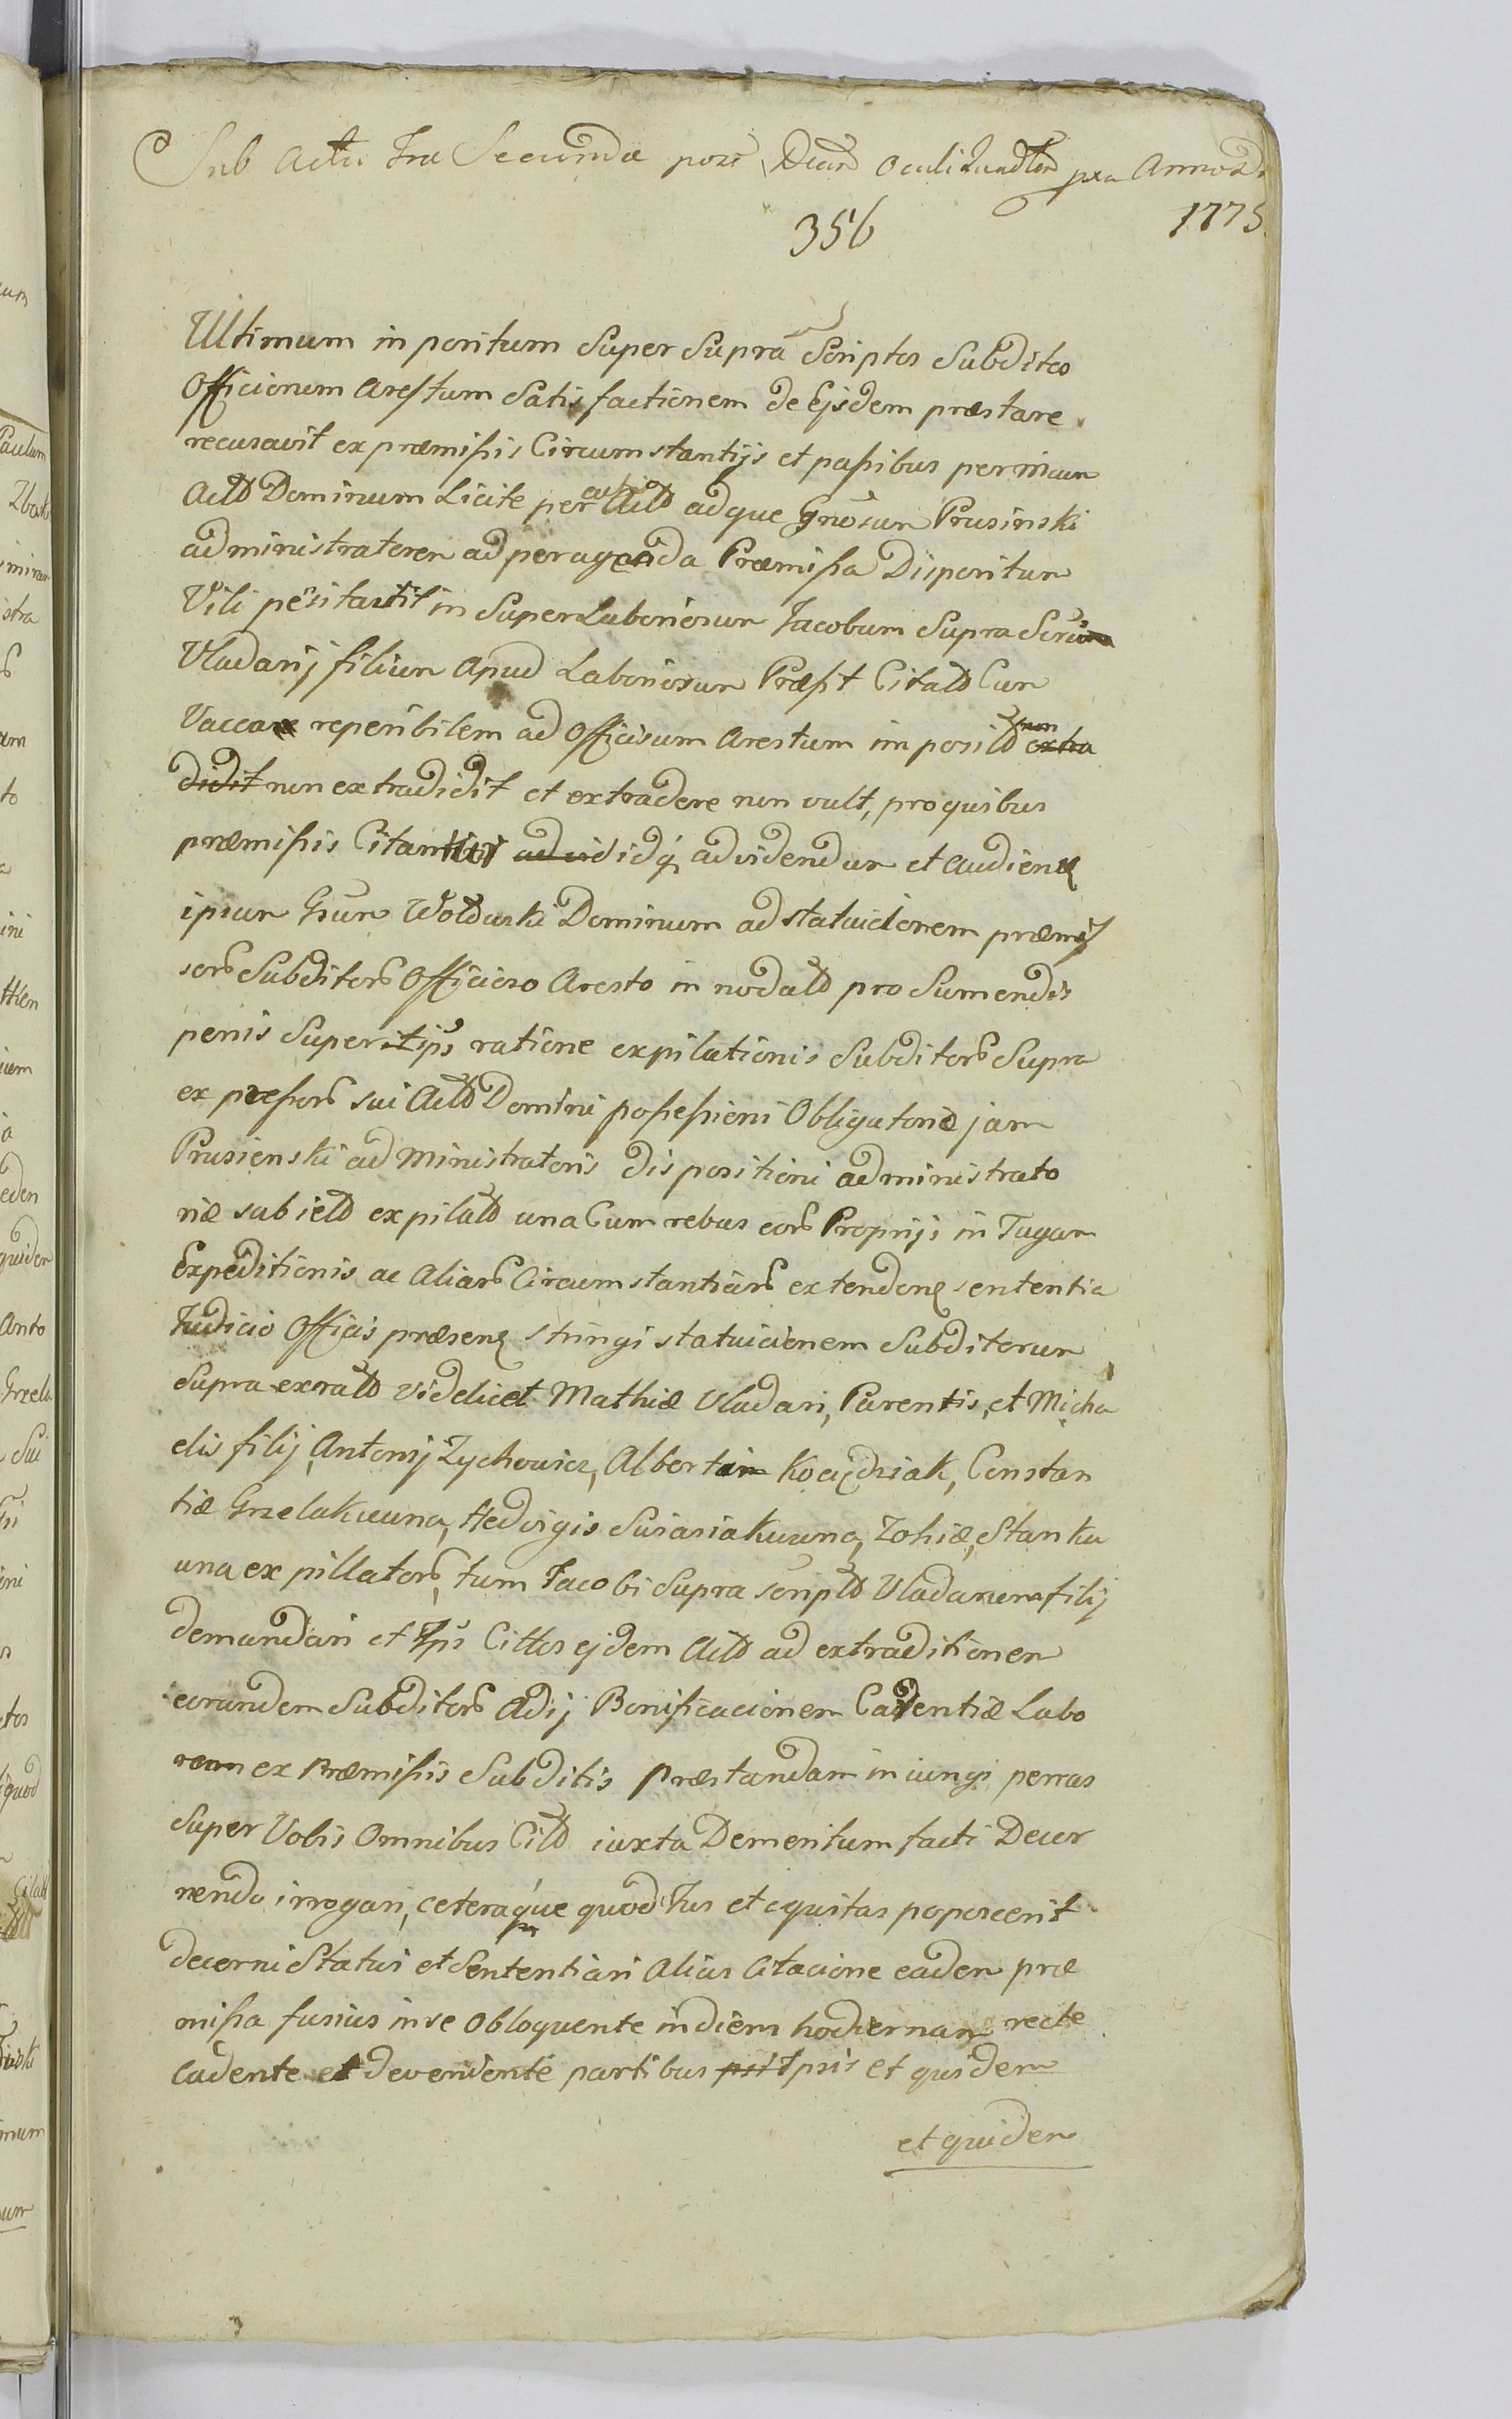 Sub Actu Fra Secunda post Dcam Oculi quadlem pro Anno D
1775
356
Ultimum in poritum Super Supra Scriptos Subditos
Officiorum Arestum Satisfactionem de Ejsdem præstare
recusavit ex præmissis Circumstantijs et passibus per meum
Actd Dominum Licite per Actd adque Gnosum Prusinski
administratorem ad peragenda Præmissa Dispositum
Vili in Super Laboriosum Jacobum Supra
Vladarij filium Apud Laboriosum Citatd Cum
Vaccare reperibilem ad Officiosum Arestum im positd non extra
didit non extradidit et extradere non vult, pro quibus
præmissis idq, ad videndum et audiend
ipsum Gsum Wolduski Dominum ad statuicionem præmis
sors Subditors Officioso Aresto in nodatd pro Sumendis
penis Super ipsis ratione expilationis Subditors Supra
ex pressors sui Actd Domini possessioni Obligatoriæ jam
Prusienski administratoris dispositioni administrato
riæ subiectd expilatd una Cum rebus eors Proprijs in Tagam
Expeditionis ac Aliars Circumstantiars extendend sententia
Judicio Officis præsend stringi statuicionem Subditorum
Supra exratd videlicet Mathiæ Vladari, Parentis, et Micha
elis filij Antonij Zychowicz, Kociędziak, Constan
tiæ Grzelakuwna, Hedvigis Susiasiakuwna, Zohiæ, Stanku
una ex pillators, tum Jacobi Supra scriptd Vladarium filij
demandari et Ipsis Cittos ejdem Actd ad extraditionem
eorundem Subditors Adij Bonificacionem Cadentiæ Labo
rum ex Præmissis Subditis præstandam in iungi pernas
Super Vobis Omnibus Citd iuxta Demeritum facti Decer
nendo irrogari, ceteraque quod Jus et equitas poposcerit
decerni Statui et Sententiari Alias Citacione eadem præ
missa fusius in se Obloquente in diem hodiernam recte
Cadente et devenienté partibus psit ipsis et quidem
et quidem